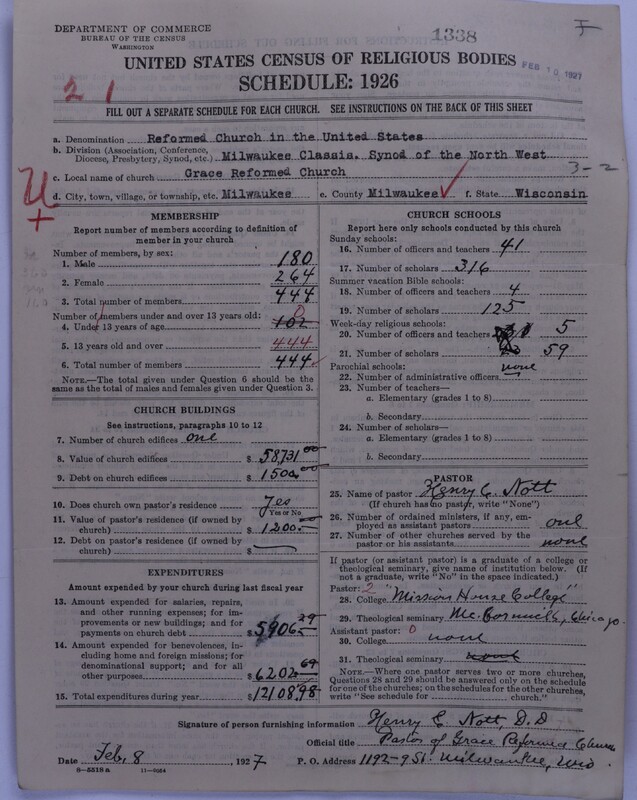 DEPARTMENT OF COMMERCE
BUREAU OF THE CENSUS
WASHINGTON
1338
UNITED STATES CENSUS OF RELIGIOUS BODIES
FEB 10 1927
SCHEDULE: 1926
2 1
FILL OUT A SEPARATE SCHEDULE FOR EACH CHURCH. SEE INSTRUCTIONS ON THE BACK OF THIS SHEET
a. Denomination Reformed Church in the United States
b. Division (Association, Conference, Diocese, Presbytery, Synod, etc.) Milwaukee Classis. Synod of the North West
c. Local name of church Grace Reformed Church
3-2
d. City, town, village, or township, etc. Milwaukee e. County Milwaukee f. State Wisconsin
MEMBERSHIP
Report number of members according to definition of
member in your church
Number of members, by sex:
1. Male 180
2. Female 264
3. Total number of members 444
Number of members under and over 13 years old: 0
4. Under 13 years of age 102
5. 13 years old and over 444
6. Total number of members 444
NOTE.—The total given under Question 6 should be
same as the total of males and females given under Question 3.
CHURCH BUILDINGS
See instructions, paragraphs 10 to 12
7. Number of church edifices one
8. Value of church edifices $ 58731 00
9. Debt on church edifices $ 1500 00
10. Does church own pastor's residence Yes
Yes or No
11. Value of pastor's residence (if owned by
church) $ 1200.—
12. Debt on pastor's residence (if owned by
church) $ —
EXPENDITURES
Amount expended by your church during last fiscal year
13. Amount expended for salaries, repairs,
and other running expenses; for im-
provements or new buildings; and for
payments on church debt $ 5906. 29
14. Amount expended for benevolences, in-
cluding home and foreign missions; for
denominational support; and for all
other purposes $ 6202. 69
15. Total expenditures during year $ 12108.98
CHURCH SCHOOLS
Report here only schools conducted by this church
Sunday schools:
16. Number of officers and teachers 41
17. Number of scholars 316
Summer vacation Bible schools:
18. Number of officers and teachers 4
19. Number of scholars 125
Week-day religious schools:
20. Number of officers and teachers 5
21. Number of scholars 59
Parochial schools: none
22. Number of administrative officers
23. Number of teachers—
a. Elementary (grades 1 to 8)
b. Secondary
24. Number of scholars—
a. Elementary (grades 1 to 8)
b. Secondary
PASTOR
25. Name of pastor Henry C. Nott
(If church has no pastor, write "None")
26. Number of ordained ministers, if any, em-
ployed as assistant pastors one
27. Number of other churches served by the
pastor or his assistants none
If pastor (or assistant pastor) is a graduate of a college or
theological seminary, give name of institution below. (If
not a graduate, write "No" in the space indicated.)
Pastor: 2
28. College "Mission House College"
29. Theological seminary Mc. Cormick, Chicago.
Assistant pastor: 0
30. College none
31. Theological seminary none
NOTE.—Where one pastor serves two or more churches,
Questions 28 and 29 should be answered only on the schedule
for one of the churches; on the schedules for the other churches,
write "See schedule for church."
Signature of person furnishing information Henry C Nott, D.D
Official title Pastor of Grace Reformed Church
Date Feb. 8, 1927 P. O. Address 1192-9 St. Milwaukee, Wis
8—5518 a 11—9864